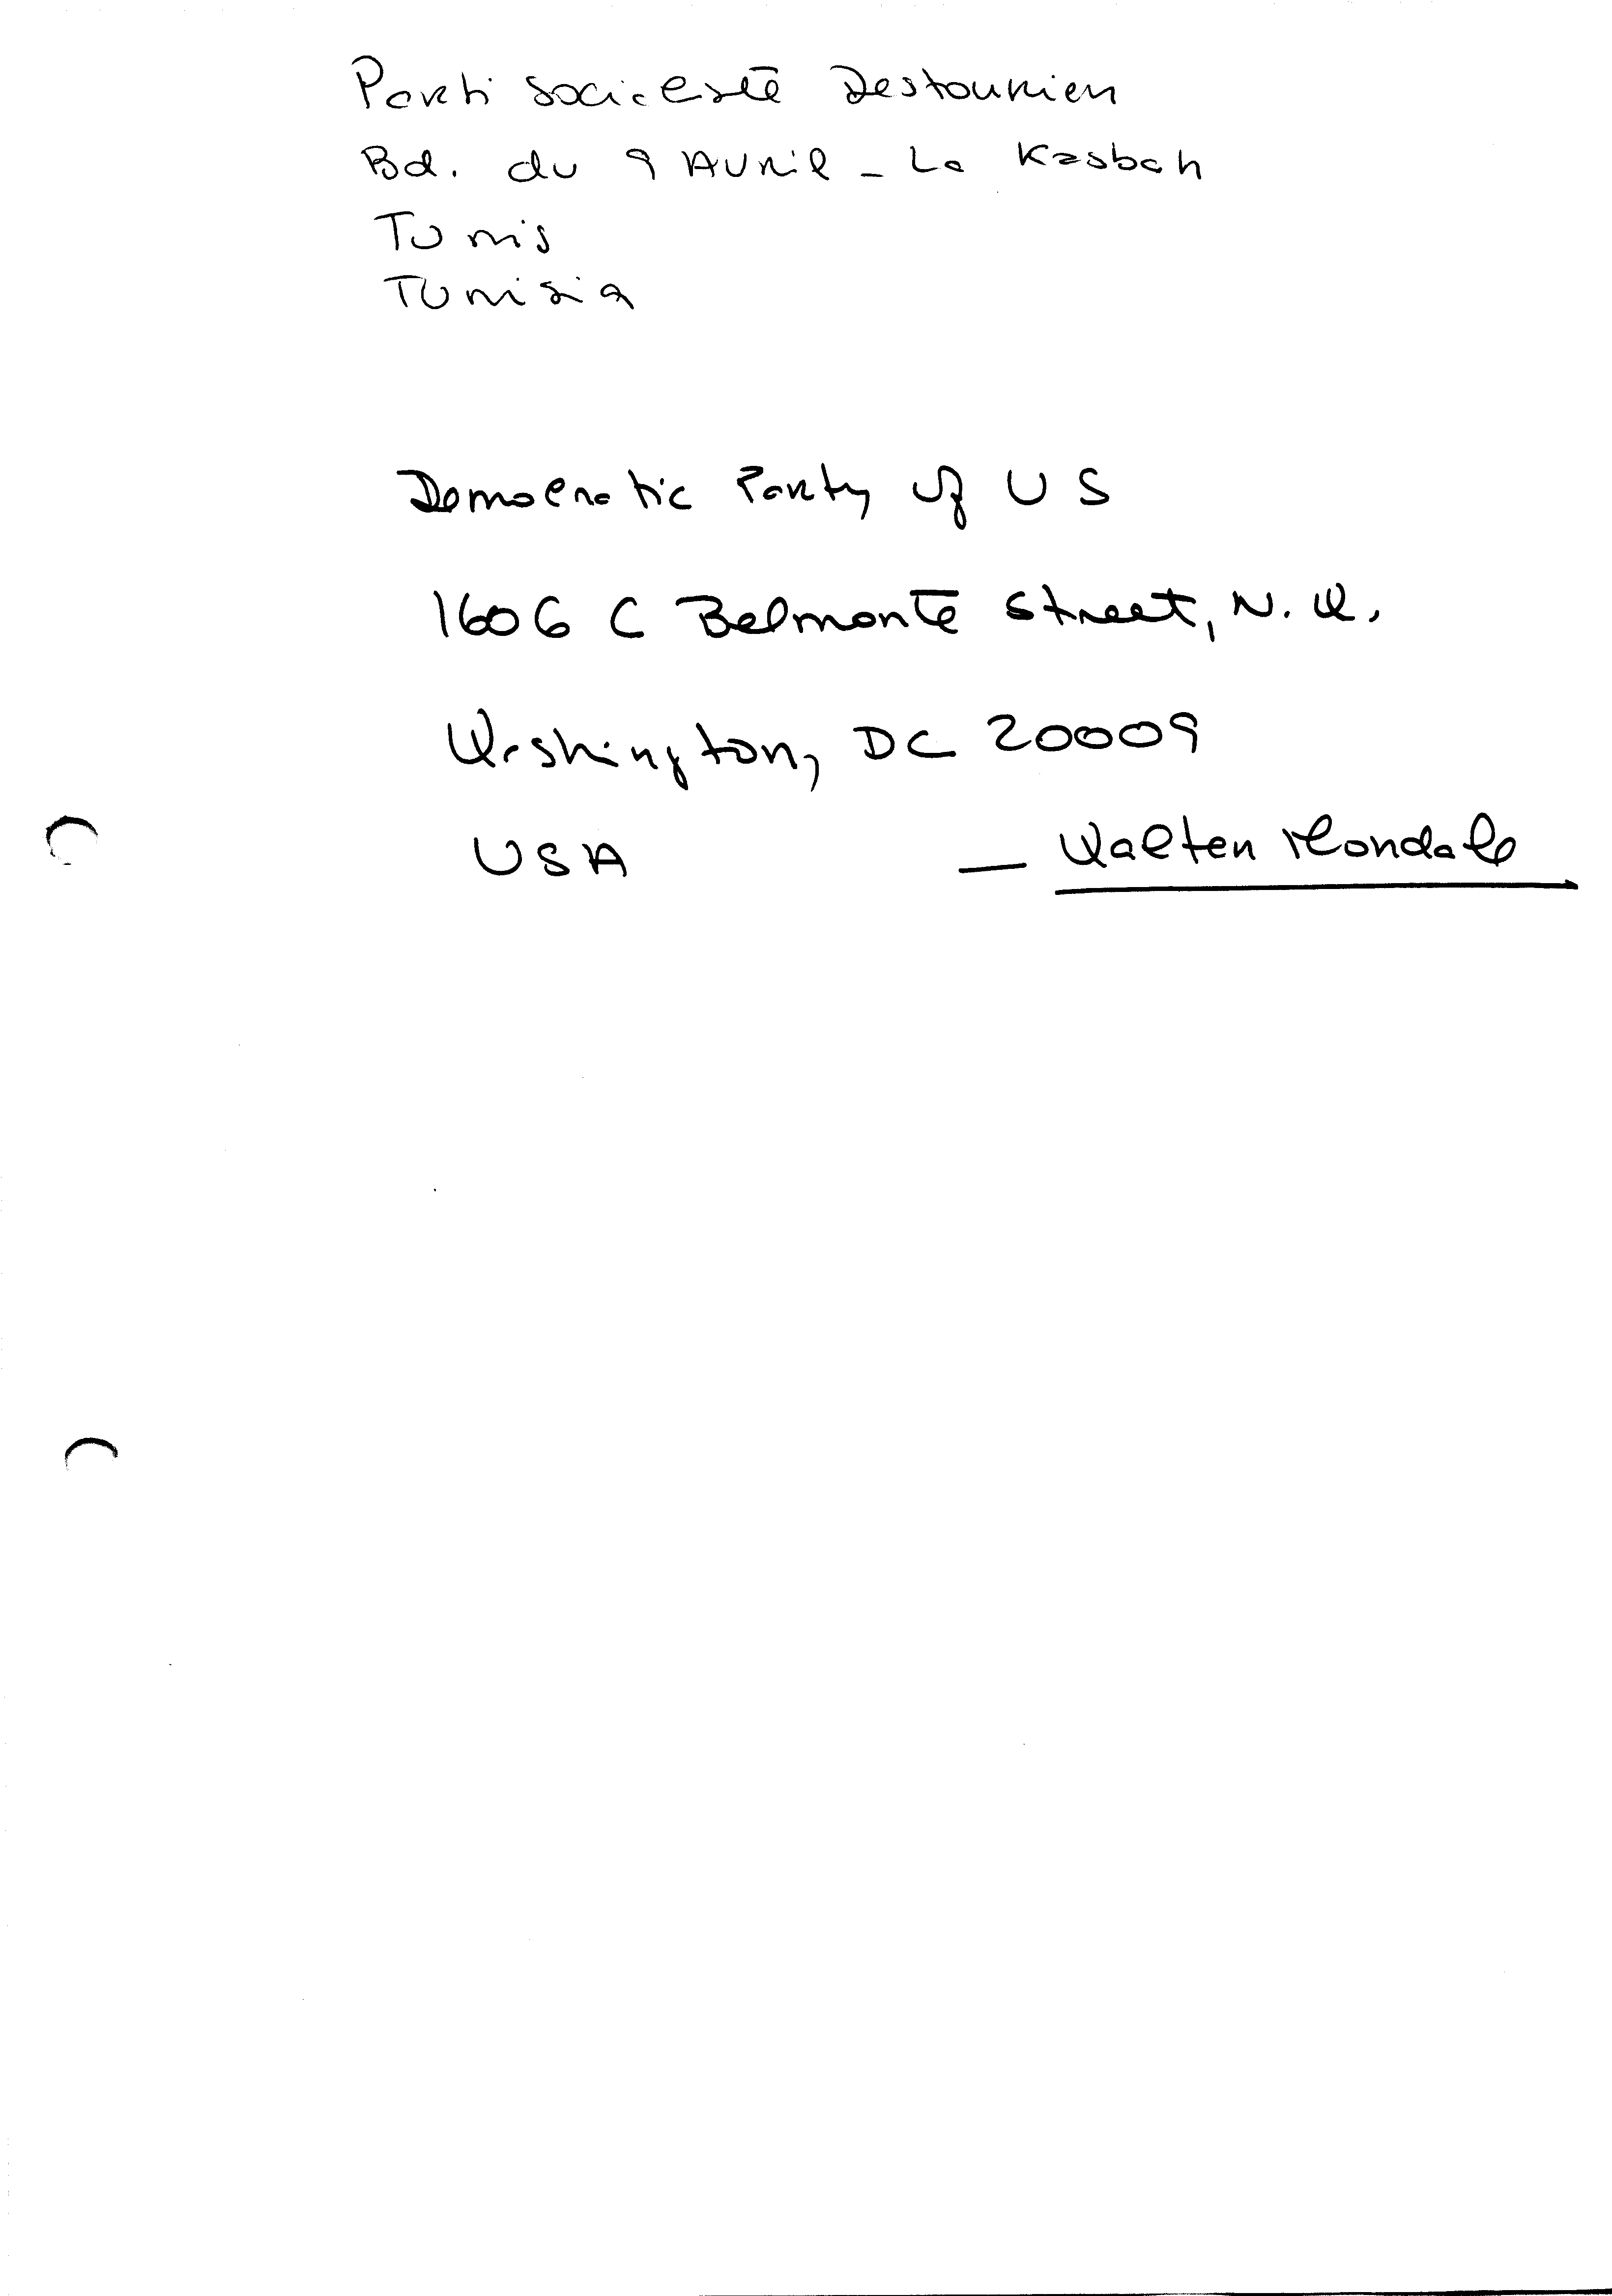 Parti Socialiste Destourien
Bd. du 9 Avril - La Kasbah
Tunis
Tunisia
Democratic Party of US
1606 C Belmonte Street, N.W.
Washington, DC 20009
USA — Walter Mondale